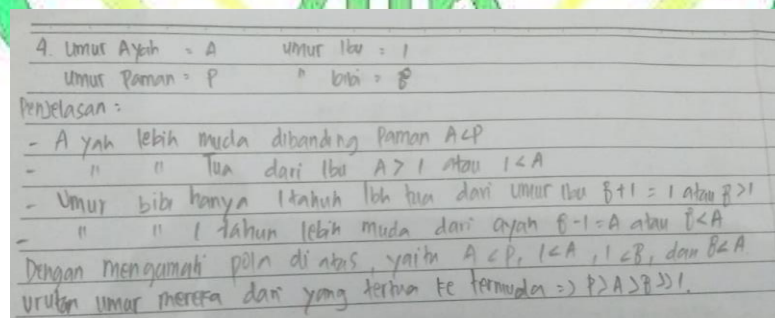 4. Umur Ayah = A umur Ibu = 1
Umur Paman = P " bibi = B
Penjelasan :
- Ayah lebih muda dibanding Paman A<P
- " " Tua dari Ibu A > 1 atau 1 < A
- Umur bibi hanya 1 tahun lbh tua dari umur Ibu B+1 = 1 atau B>1
- " " 1 tahun lebih muda dari ayah B-1=A atau B<A
Dengan mengamati pola di atas, yaitu A<P, 1<A, 1<B, dan B<A
Urutan umur mereka dari yang tertua ke termuda => P>A>B>1.